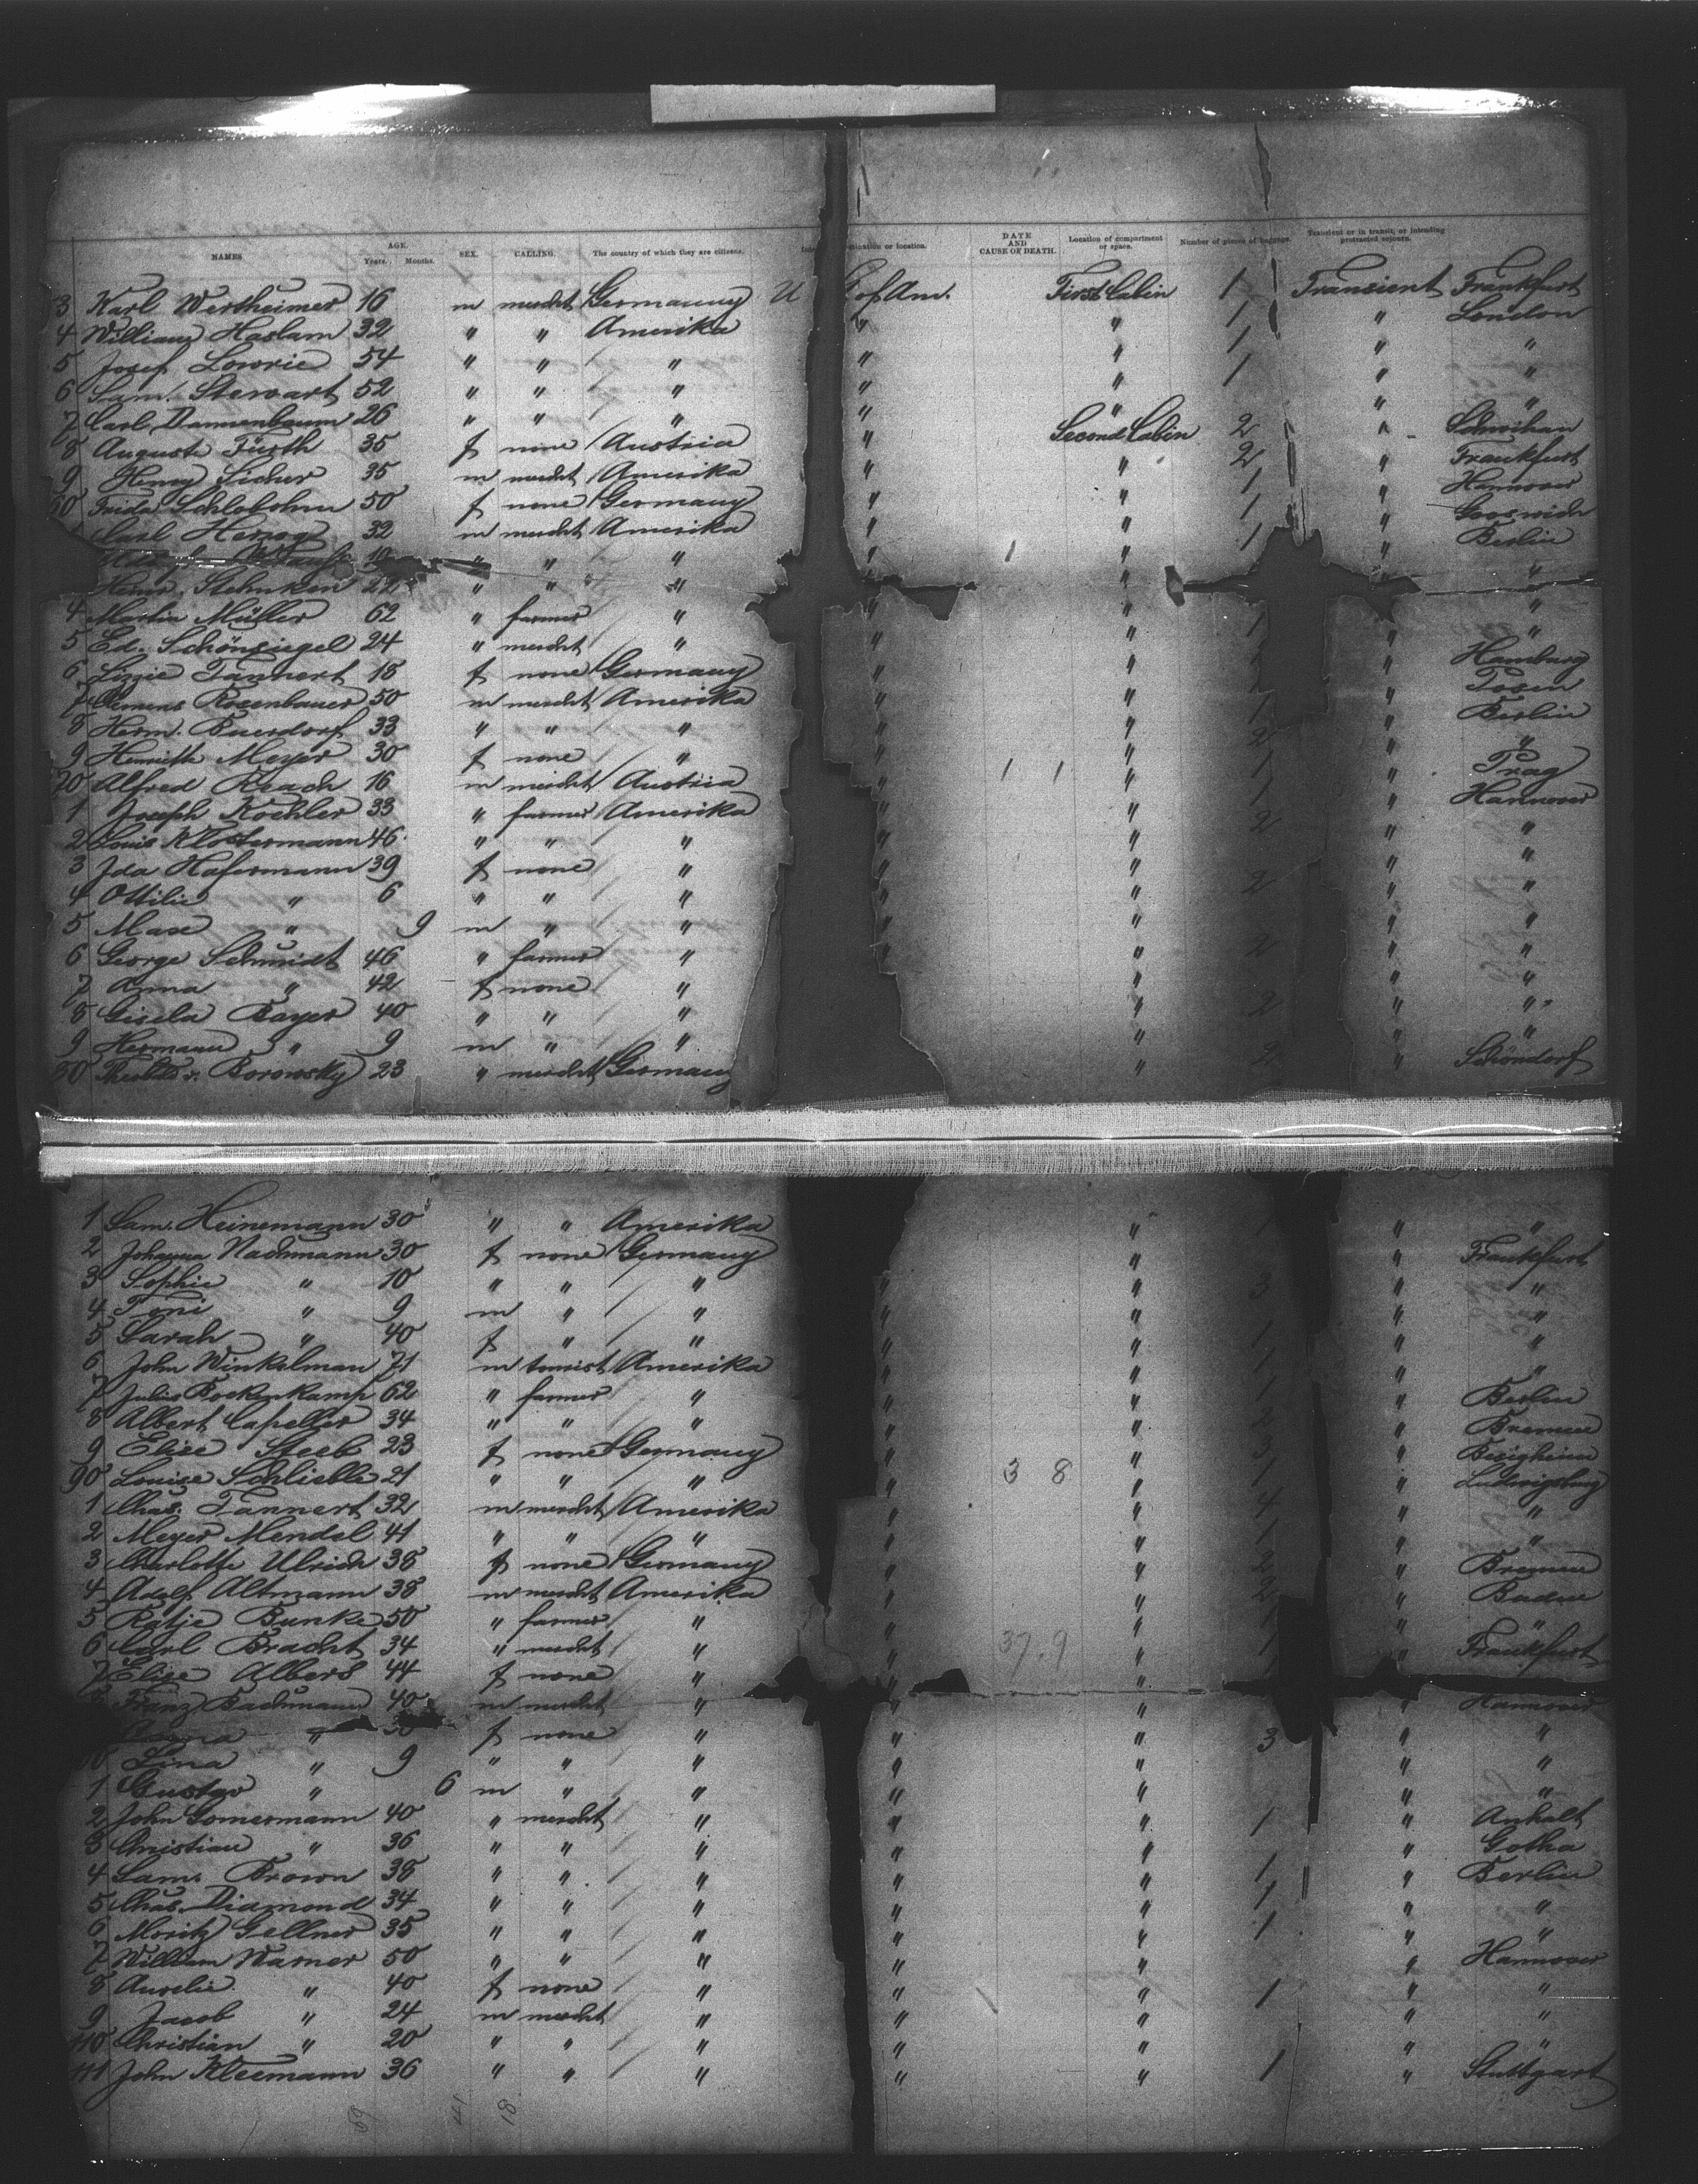 NAMES AGE. Years. Months. SEX. CALLING. The country of which they are citizens. or location. DATE AND CAUSE OF DEATH. Location of compartment or space. Number of pieces of baggage. Transient or in transit, or intending protracted sojourn.
3 Karl Wertheimer 16 m mercht Germany U of Am. First Cabin 1 Transient Frankfurt
4 William Haslam 32 " " Amerika " " 1 " London
5 Josef Lowrie 54 " " " " " 1 " "
6 Sam. Stewart 52 " " " " " 1 " "
7 Carl Dannenbaum 26 " " " " " "
8 Auguste Fürth 35 f none Austria " Second Cabin 2 "
9 Henry Sicher 35 m mercht Amerika " " 2 " Frankfurt
60 Frida Schlobohm 50 f none Germany " " 1 " Hannover
Carl Herzog 32 m mercht Amerika " " 1 "
" " " " " 1 " Berlin
Heinr. Stehnken 22 " " " " "
4 Martin Müller 62 " farmer " " " "
5 Ed. Schönsiegel 24 " mercht " " " 1 " "
6 Lizzie Tannert 18 f none Germany " " " Hamburg
7 Clemens Rosenbauer 50 m mercht Amerika " " " Posen
8 Herm. Buerdorf 33 " " " " " 1 " Berlin
9 Henriette Meyer 30 f none " " " 2 " "
70 Alfred Reach 16 m mercht Austria " 1 1 " 1 " Prag
1 Joseph Koehler 33 " farmer Amerika " " 1 " Hannover
2 Louis Klostermann 46 " " " " " 2 " "
3 Ida Hafermann 39 f none " " " " "
4 Ottilie " 6 " " " " " 2 " "
5 Max " 9 m " " " " " "
6 George Schmidt 46 " farmer " " " 2 " "
7 Anna " 42 f none " " " "
8 Gisela Bayer 40 " " " " 2 " "
9 Hermann " 9 m " " " " "
80 v. Borowsky 23 " mercht Germany " 2 " Schöndorf
1 Sam. Heinemann 30 " " Amerika " 1 " "
2 Johanna Nachmann 30 f none Germany " " Frankfurt
3 Sophie " 10 " " " " " 3 " "
4 Toni " 9 m " " " " " "
5 Sarah " 40 f " " " " 1 " "
6 John Winkelman 71 m tourist Amerika " " 1 " "
7 Julius Bockenkamp 62 " farmer " " " 1 " Berlin
8 Albert Capeller 34 " " " " " 2 " Bremen
9 Elise Steeb 23 f none Germany " " 3 " Besigheim
90 Louise Schlieble 21 " " " " 3 8 " 1 " Ludwigsburg
1 Chas. Tannert 32 m mercht Amerika " " 4 " "
2 Meyer Mendel 41 " " " " " 1 " "
3 Charlotte Ulrich 38 f none Germany " " 2 " Bremen
4 Adolf Altmann 38 m mercht Amerika " " 2 " Baden
5 Katje Bunke 50 " farmer " " " 1 " "
6 Carl Bracht 34 " mercht " " 37.9 " 1 " Frankfurt
7 Elise Albers 44 f none " " "
8 Franz Bachmann 40 m mercht " " " " Hannover
" f none " " " 3 " "
Lina " 9 " " " " " " "
1 Gustav " 6 m " " " " " "
2 John Gomermann 40 " mercht " " " 1 " Anhalt
3 Christian " 36 " " " " " " Gotha
4 Sam. Brown 38 " " " " " 1 " Berlin
5 Chas. Diamond 34 " " " " " 1 " "
6 Moritz Gellner 35 " " " " " 1 " "
7 William Warner 50 " " " " " " Hannover
8 Aurelie " 40 f none " " " 1 " "
9 Jacob " 24 m mercht " " " " "
110 Christian " 20 " " " " " " "
111 John Kleemann 36 " " " " " 1 " Stuttgart
89 41 18